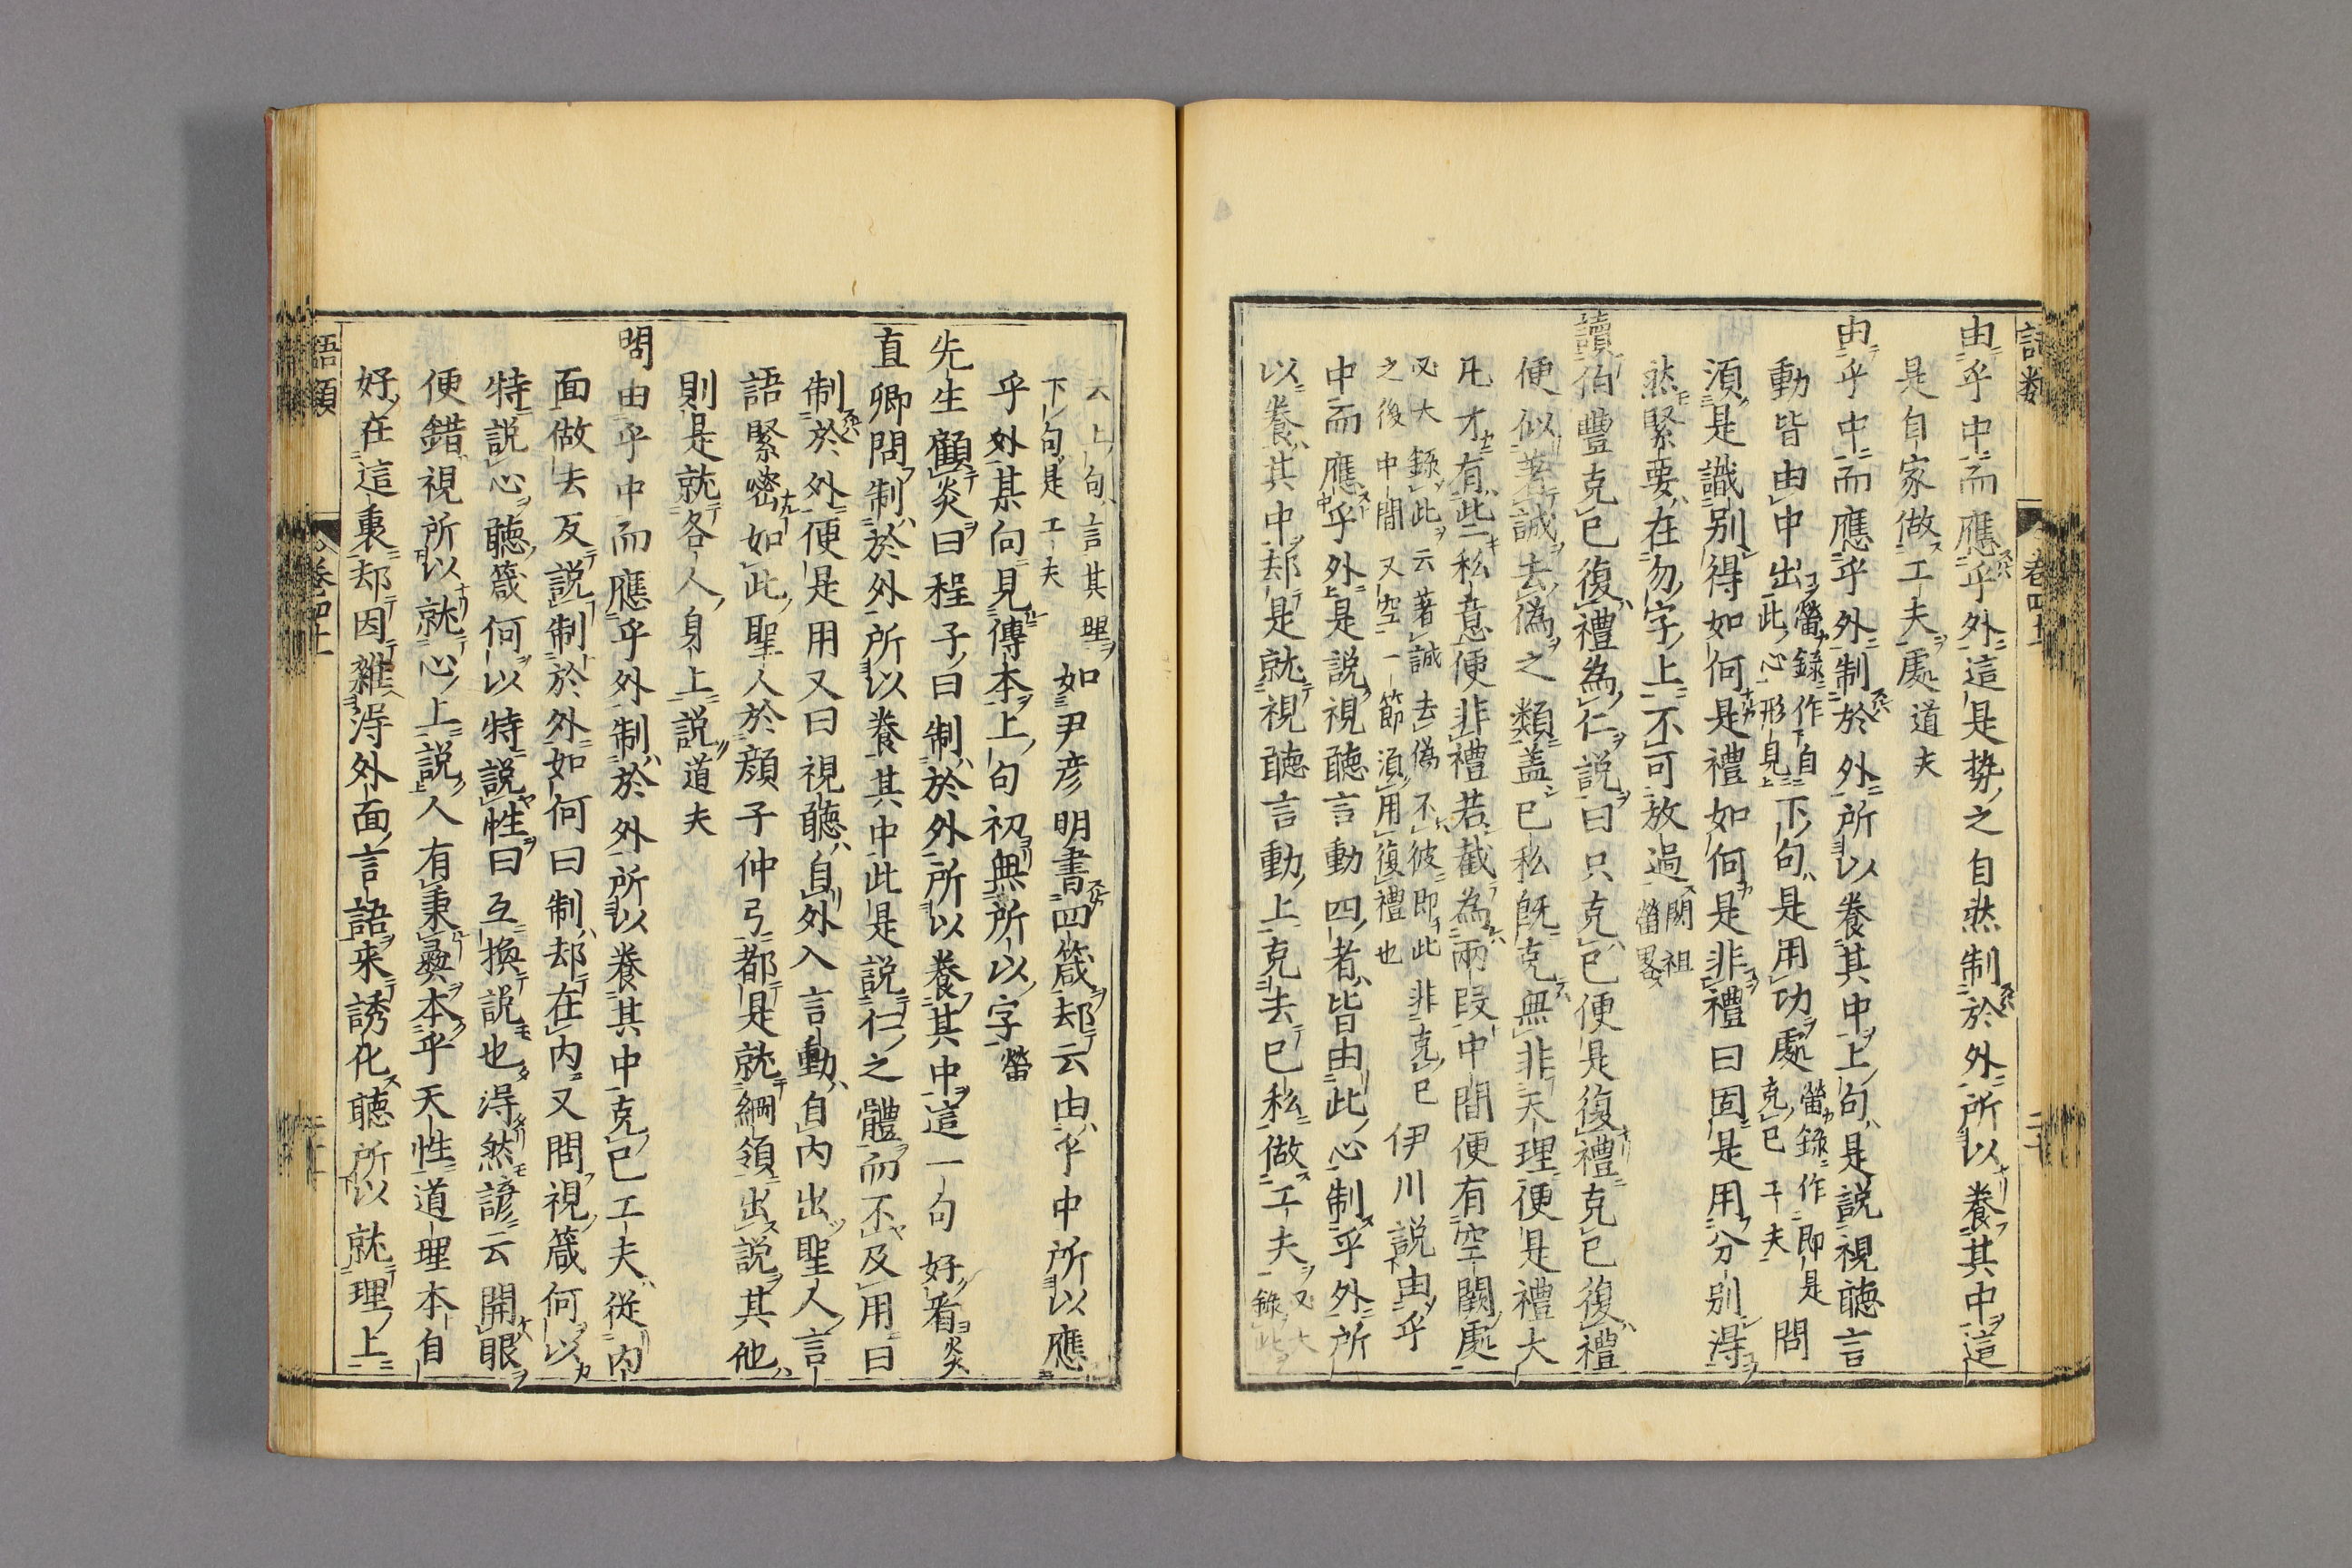 由乎中而應乎外這是勢之自然制於外所以養其中這
是自家做工夫處道夫
由乎中而應乎外制於外所以養其中上句是說視聽言
動皆由中出𤎉錄作自此心形見下句是用功處𤎉錄作即是克己工夫問
須是識別得如何是禮如何是非禮曰固是用分別得
然緊要在勿字上不可放過閎祖𤎉畧
讀伯豐克己復禮為仁說曰只克己便是復禮克己復禮
便似著誠去偽之類蓋己私既克無非天理便是禮大
凡才有些私意便非禮若截為兩段中間便有空闕處
又大錄此云著誠去偽不彼即此非克己之後中間又空一節須用復禮也伊川說由乎
中而應乎外是說視聽言動四者皆由此心制乎外所
以養其中却是就視聽言動上克去己私做工夫又大錄此
云上句言其理下句是工夫如尹彥明書四箴却云由乎中所以應
乎外某向見傳本上句初無所以字𤎉
先生顧炎曰程子曰制於外所以養其中這一句好看炎
直卿問制於外所以養其中此是說仁之體而不及用曰
制於外便是用又曰視聽自外入言動自內出聖人言
語緊密如此聖人於顏子仲弓都是就綱領出說其他
則是就各人身上說道夫
問由乎中而應乎外制於外所以養其中克己工夫從內
面做去反說制於外如何曰制却在內又問視箴何以
特說心聽箴何以特說性曰互換說也得然諺云開眼
便錯視所以就心上說人有秉彝本乎天性道理本自
好在這裏却因雜得外面言語來誘化聽所以就理上
語類
卷四十
二十